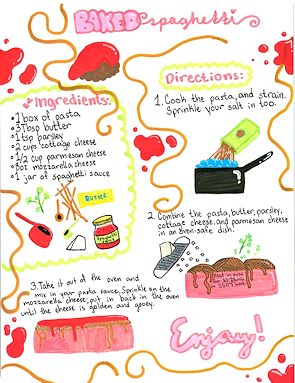 BAKED spaghetti
Ingredients:
•1 box of pasta
•3 Tbsp butter
•1 tsp parsley
•2 cups cottage cheese
•1/2 cup parmesan cheese
mozzarella cheese
•1 jar of spaghetti sauce
BUTTER
Directions:
1. Cook the pasta, and strain.
Sprinkle your salt in too.
2. Combine the pasta, butter, parsley,
cottage cheese, and parmesan cheese
in an oven-safe dish.
3. Take it out of the oven and
mix in your pasta sauce. Sprinkle on the
mozzarella cheese, put in back in the oven
until the cheese is golden and gooey.
Enjoy!